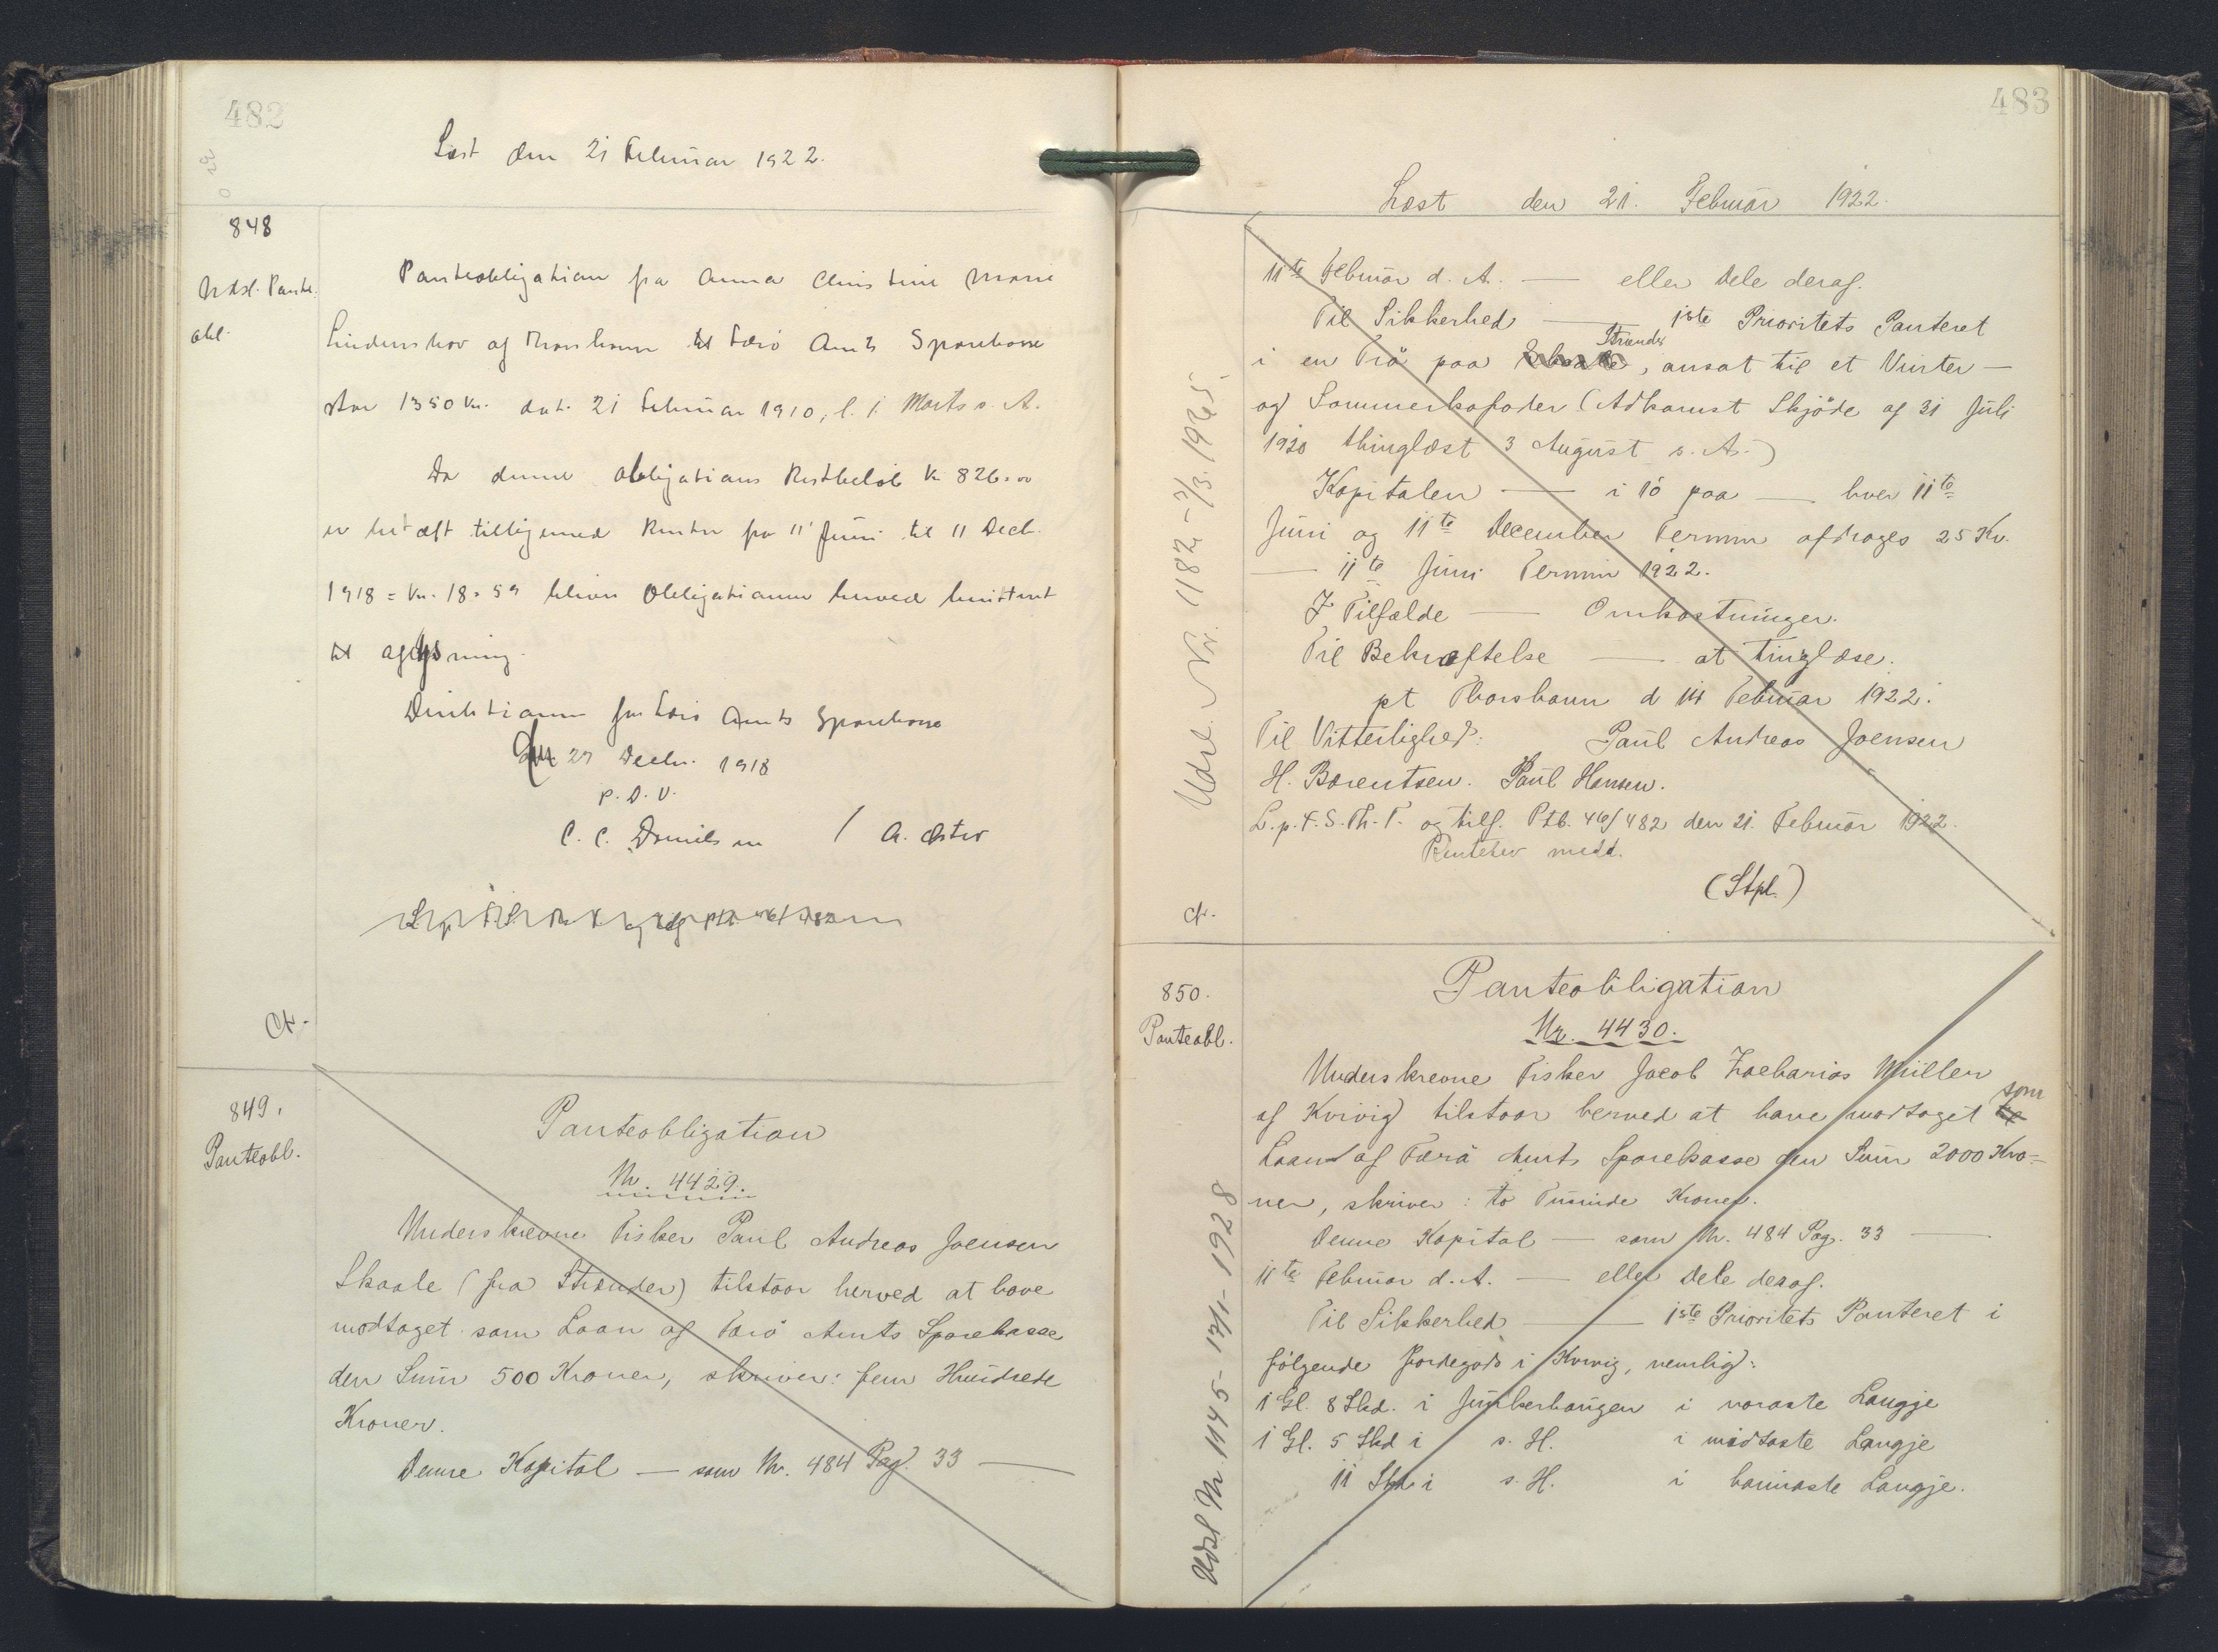 482
Læst den 21 Februar 1922.
848
Udsl. Pante.
obl.
Panteobligation fra Anna Christine Marie
Lindenskov af Thorshavn til Færø Amts Sparekasse
stor 1350 Kr. dat. 21 Februar 1910, l. 1. Marts s. A.
Da denne Obligations Restbeløb Kr 826.00
er betalt tilligemed Renter fra 11 Juni til 11 Decb.
1918 = Kr. 18.59 bliver Obligationen herved kvitteret
til aflysning.
Direktionen for Færø Amts Sparekasse
den 27 Decbr. 1918
P. D. V.
C. C. Danielsen / A. Øster
L. p. F. S. Th. T. og tilf. Ptb. 46/482
Cf.
849.
Panteobl.
Panteobligation
Nr. 4429.
Underskrevne Fisker Paul Andreas Joensen
Skaale (fra Strænder) tilstaar herved at have
modtaget som Laan af Færø Amts Sparekasse
den Sum 500 Kroner, skriver: fem Hundrede
Kroner.
Denne Kapital — som Nr. 484 Pag. 33 —
483
Læst den 21. Februar 1922.
11te Februar d. A. — eller Dele deraf.
Til Sikkerhed — 1ste Prioritets Panteret
Strænder
i en Trø paa , ansat til et Vinter—
og Sommerkofoder (Adkomst Skjøde af 31 Juli
1920 thinglæst 3 August s. A.)
Kapitalen — i 10 paa — hver 11te
Juni og 11te December Termin afdrages 25 Kr.
— 11te Juni Termin 1922.
I Tilfælde — Omkostninger.
Til Bekræftelse — at tinglæse.
pt Thorshavn d 14 Februar 1922.
Til Vitterlighed: Paul Andreas Joensen
H. Bærentsen. Paul Hansen.
L. p. F. S. Th. T. og tilf. Ptb. 46/482 den 21. Februar 1922.
Panteter medd.
(Stpl.)
Cf.
Udsl. Nr. 1182 - 2/3. 1965.
850.
Panteobl.
Panteobligation
Nr. 4430.
Underskrevne Fisker Jacob Zacharias Müller
af Kvivig tilstaar herved at have modtaget som
Laan af Færø Amts Sparekasse den Sum 2000 Kro-
ner, skriver: to Tusinde Kroner.
Denne Kapital — som Nr. 484 Pag. 33 —
11te Februar d. A. — eller Dele deraf.
Til Sikkerhed — 1ste Prioritets Panteret i
følgende Jordegods i Kvivig, nemlig:
1 Gl. 8 Skd. i Junkerhaugen i noraste Langje
1 Gl. 5 Skd i s. H. i midtaste Langje
11 Skd. i s. H. i haimaste Langje.
Udsl Nr 1145 - 17/1 - 1928